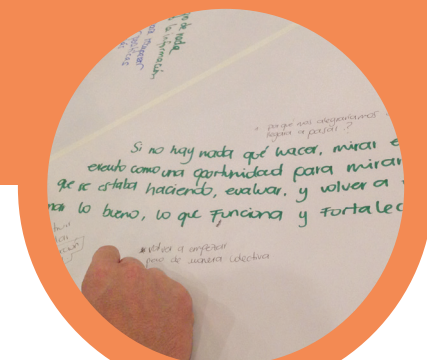 de nada
la información
por qué nos alegraríamos
llegara a pasar?
Si no hay nada qué hacer, mirar e
evento como una oportunidad para mirar
que se estaba haciendo, evaluar, y volver a
lo bueno, lo que Funciona y Fortalec
volver a empezar
pero de manera colectiva